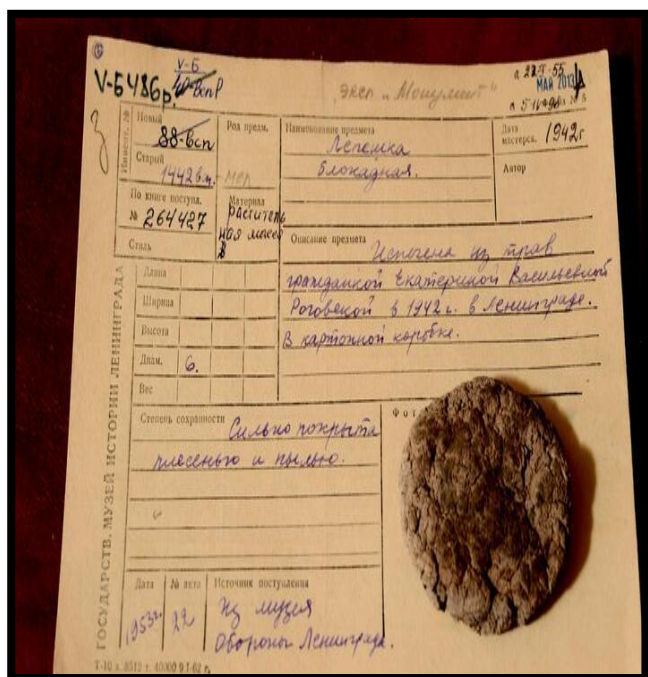 V-Б
V-Б486р.
эксп „Монумент"
МАЙ 2013
Инвент. №
Новый
88-всп
Старый
1442 в.н.
Род предм.
Наименование предмета
Лепешка
блокадная.
Дата
мастерск. 1942г
Автор
По книге поступ.
№ 264427
Сталь
Материал
раститель
ная масса
Описание предмета
Испечена из трав
гражданкой Екатериной Васильевной
Роговской в 1942 г. в Ленинграде.
В картонной коробке.
Длина
Ширина
Высота
Диам. 6.
Вес
Степень сохранности
Сильно покрыта
плесенью и пылью.
Фот
Дата
1953г.
№ акта
22
Источник поступления
Из музея
Обороны Ленинграда.
ГОСУДАРСТВ. МУЗЕЙ ИСТОРИИ ЛЕНИНГРАДА